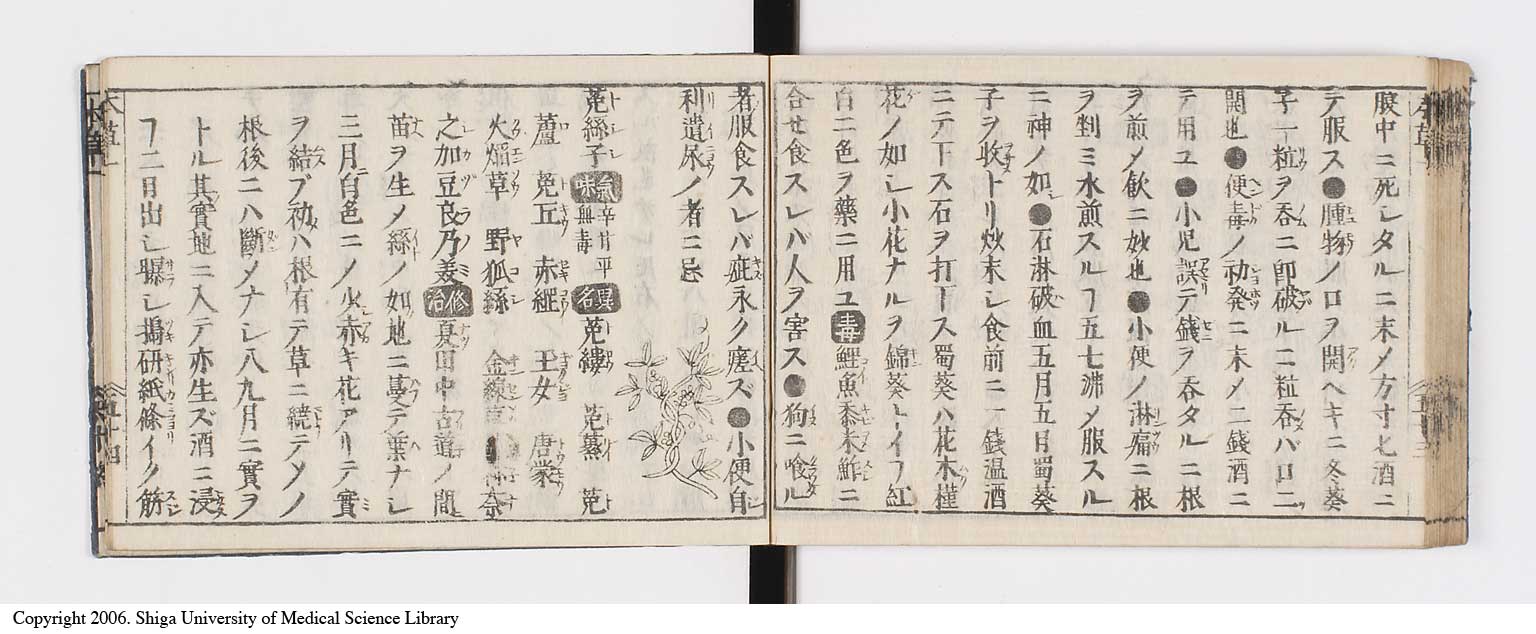 膜中ニ死シタルニ末メ方寸七酒ニ
テ服ス●腫物ノロヲ開ヘキニ冬葵
子一粒ヲ吞ニ即破ル二粒吞バ口二
開也●便毒ノ初発ニ末メ二錢酒ニ
テ用ユ●小児誤テ錢ヲ吞タルニ根
ヲ煎メ飲ニ妙也●小便ノ淋痛ニ根
ヲ剉ミ水煎スルヿ五七沸メ服スル
ニ神ノ如●石淋破血五月五日蜀葵
子ヲ收トリ炒末シ食前ニ一錢温酒
ニテ下ス石ヲ打下ス蜀葵ハ花木槿
花ノ如シ小花ナルヲ錦葵トイフ紅
白二色ヲ藥ニ用ユ毒鯉魚黍米鮓ニ
合セ食スレバ人ヲ害ス●狗ニ喰ル
者服食スレバ疵永ク瘥ズ●小便自
利遺尿ノ者ニ忌
菟絲子 氣味辛甘平無毒 異名 菟縷 菟蔂 菟
蘆 菟丘 赤䋲 王女 唐蒙
火焔草 野狐絲 金線草
之加豆良乃美 修治 夏田中古道ノ間
苗ヲ生メ絲ノ如地ニ蔓テ葉ナシ
三月白色ニノ火赤キ花アリテ實
ヲ結ブ初ハ根有テ草ニ繞テメノ
根後ニハ斷メナシ八九月ニ實ヲ
トル其實地ニ入テ亦生ズ酒ニ浸
ヿ二日出シ曝シ搗研紙條イク筋
本草一
五十四
Copyright 2006. Shiga University of Medical Science Library